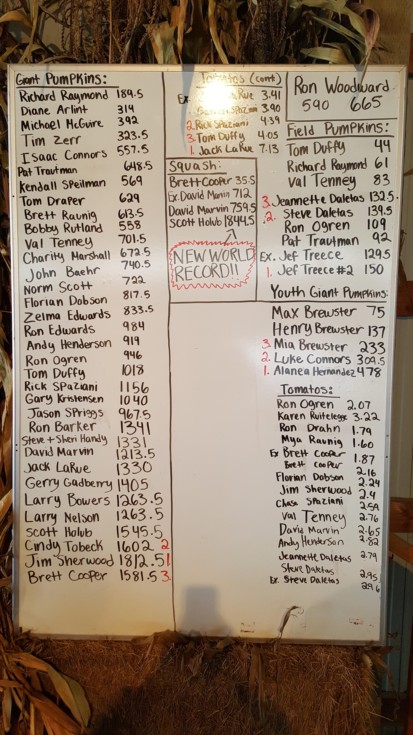 Giant Pumpkins:
Richard Raymond 189.5
Diane Arlint 314
Michael McGuire 392
Tim Zerr 323.5
Isaac Connors 557.5
Pat Trautman 648.5
Kendall Speilman 569
Tom Draper 629
Brett Raunig 613.5
Bobby Rutland 558
Val Tenney 701.5
Charity Marshall 672.5
John Baehr 740.5
Norm Scott 722
Florian Dobson 817.5
Zelma Edwards 833.5
Ron Edwards 984
Andy Henderson 919
Ron Ogren 946
Tom Duffy 1018
Rick Spaziani 1156
Gary Kristensen 1040
Jason Spriggs 967.5
Ron Barker 1341
Steve + Sheri Handy 1331
David Marvin 1213.5
Jack LaRue 1330
Gerry Gadberry 1405
Larry Bowers 1263.5
Larry Nelson 1263.5
Scott Holub 1545.5
Cindy Tobeck 1602 2
Jim Sherwood 1812.5 1
Brett Cooper 1581.5 3
Tomatos (cont)
Ex. Rue 3.41
Spaziani 3.90
2. Rick Spaziani 4.39
3. Tom Duffy 4.05
1. Jack LaRue 7.13
Squash:
Brett Cooper 35.5
Ex. David Marvin 712
David Marvin 759.5
Scott Holub 1844.5
NEW WORLD
RECORD!!
Ron Woodward
590 665
Field Pumpkins:
Tom Duffy 44
Richard Raymond 61
Val Tenney 83
3. Jeannette Daletas 132.5
2. Steve Daletas 139.5
Ron Ogren 109
Pat Trautman 92
Ex. Jef Treece 129.5
1. Jef Treece #2 150
Youth Giant Pumpkins:
Max Brewster 75
Henry Brewster 137
3. Mia Brewster 233
2. Luke Connors 309.5
1. Alanea Hernandez 478
Tomatos:
Ron Ogren 2.07
Karen 3.22
Ron Drahn 1.79
Mya Raunig 1.60
Ex Brett Cooper 1.87
Brett Cooper 2.16
Florian Dobson 2.24
Jim Sherwood 2.4
Chase Spaziani 2.59
Val Tenney 2.76
David Marvin 2.65
Andy Henderson 2.82
Jeannette Daletas 2.79
Steve Daletas 2.95
Ex. Steve Daletas